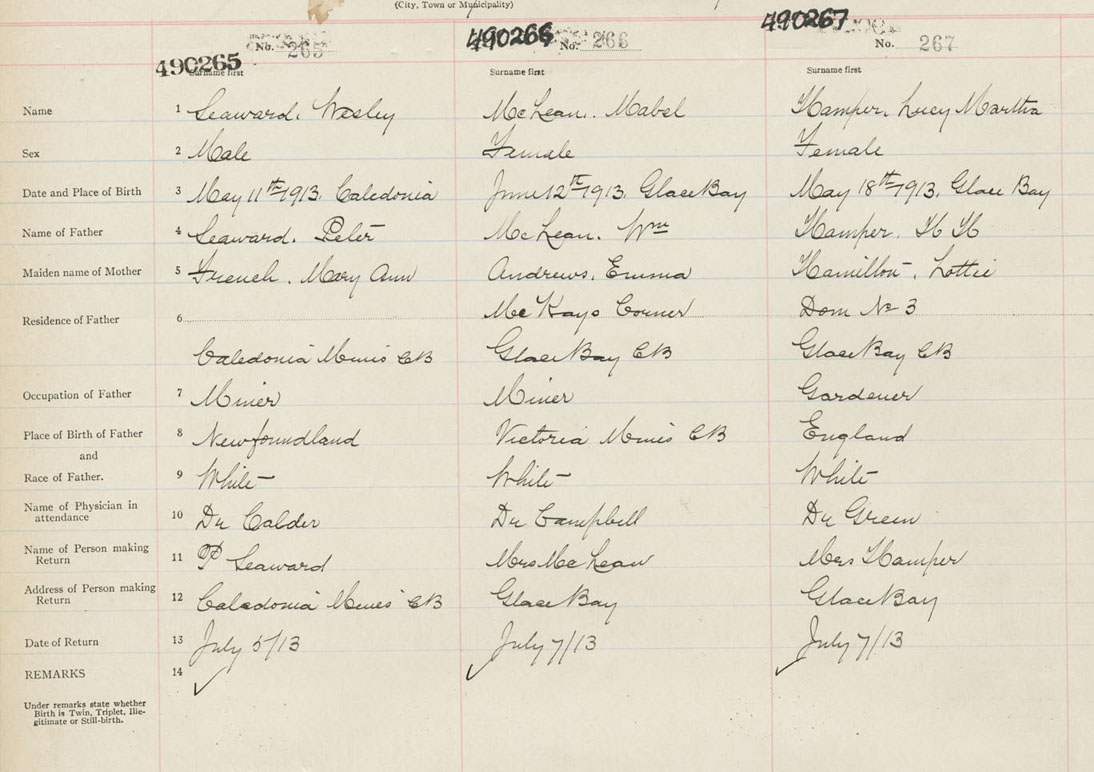 (City, Town or Municipality)
490265 No. 265 490266 No. 266 490267 No. 267
Surname first Surname first Surname first
Name 1 Seaward, Wesley McLean, Mabel Hamper, Lucy Martha
Sex 2 Male Female Female
Date and Place of Birth 3 May 11th 1913, Caledonia June 12th 1913, Glace Bay May 18th 1913, Glace Bay
Name of Father 4 Seaward, Peter McLean, Wm Hamper, H H
Maiden name of Mother 5 French, Mary Ann Andrews, Emma Hamilton, Lottie
Residence of Father 6 McKays Corner Dom No 3
Caledonia Mines CB Glace Bay CB Glace Bay CB
Occupation of Father 7 Miner Miner Gardener
Place of Birth of Father 8 Newfoundland Victoria Mines CB England
and
Race of Father. 9 White White White
Name of Physician in attendance 10 Dr Calder Dr Campbell Dr Green
Name of Person making Return 11 P Seaward Mrs McLean Mrs Hamper
Address of Person making Return 12 Caledonia Mines CB Glace Bay Glace Bay
Date of Return 13 July 5/13 July 7/13 July 7/13
REMARKS 14
Under remarks state whether
Birth is Twin, Triplet, Ille-
gitimate or Still-birth.